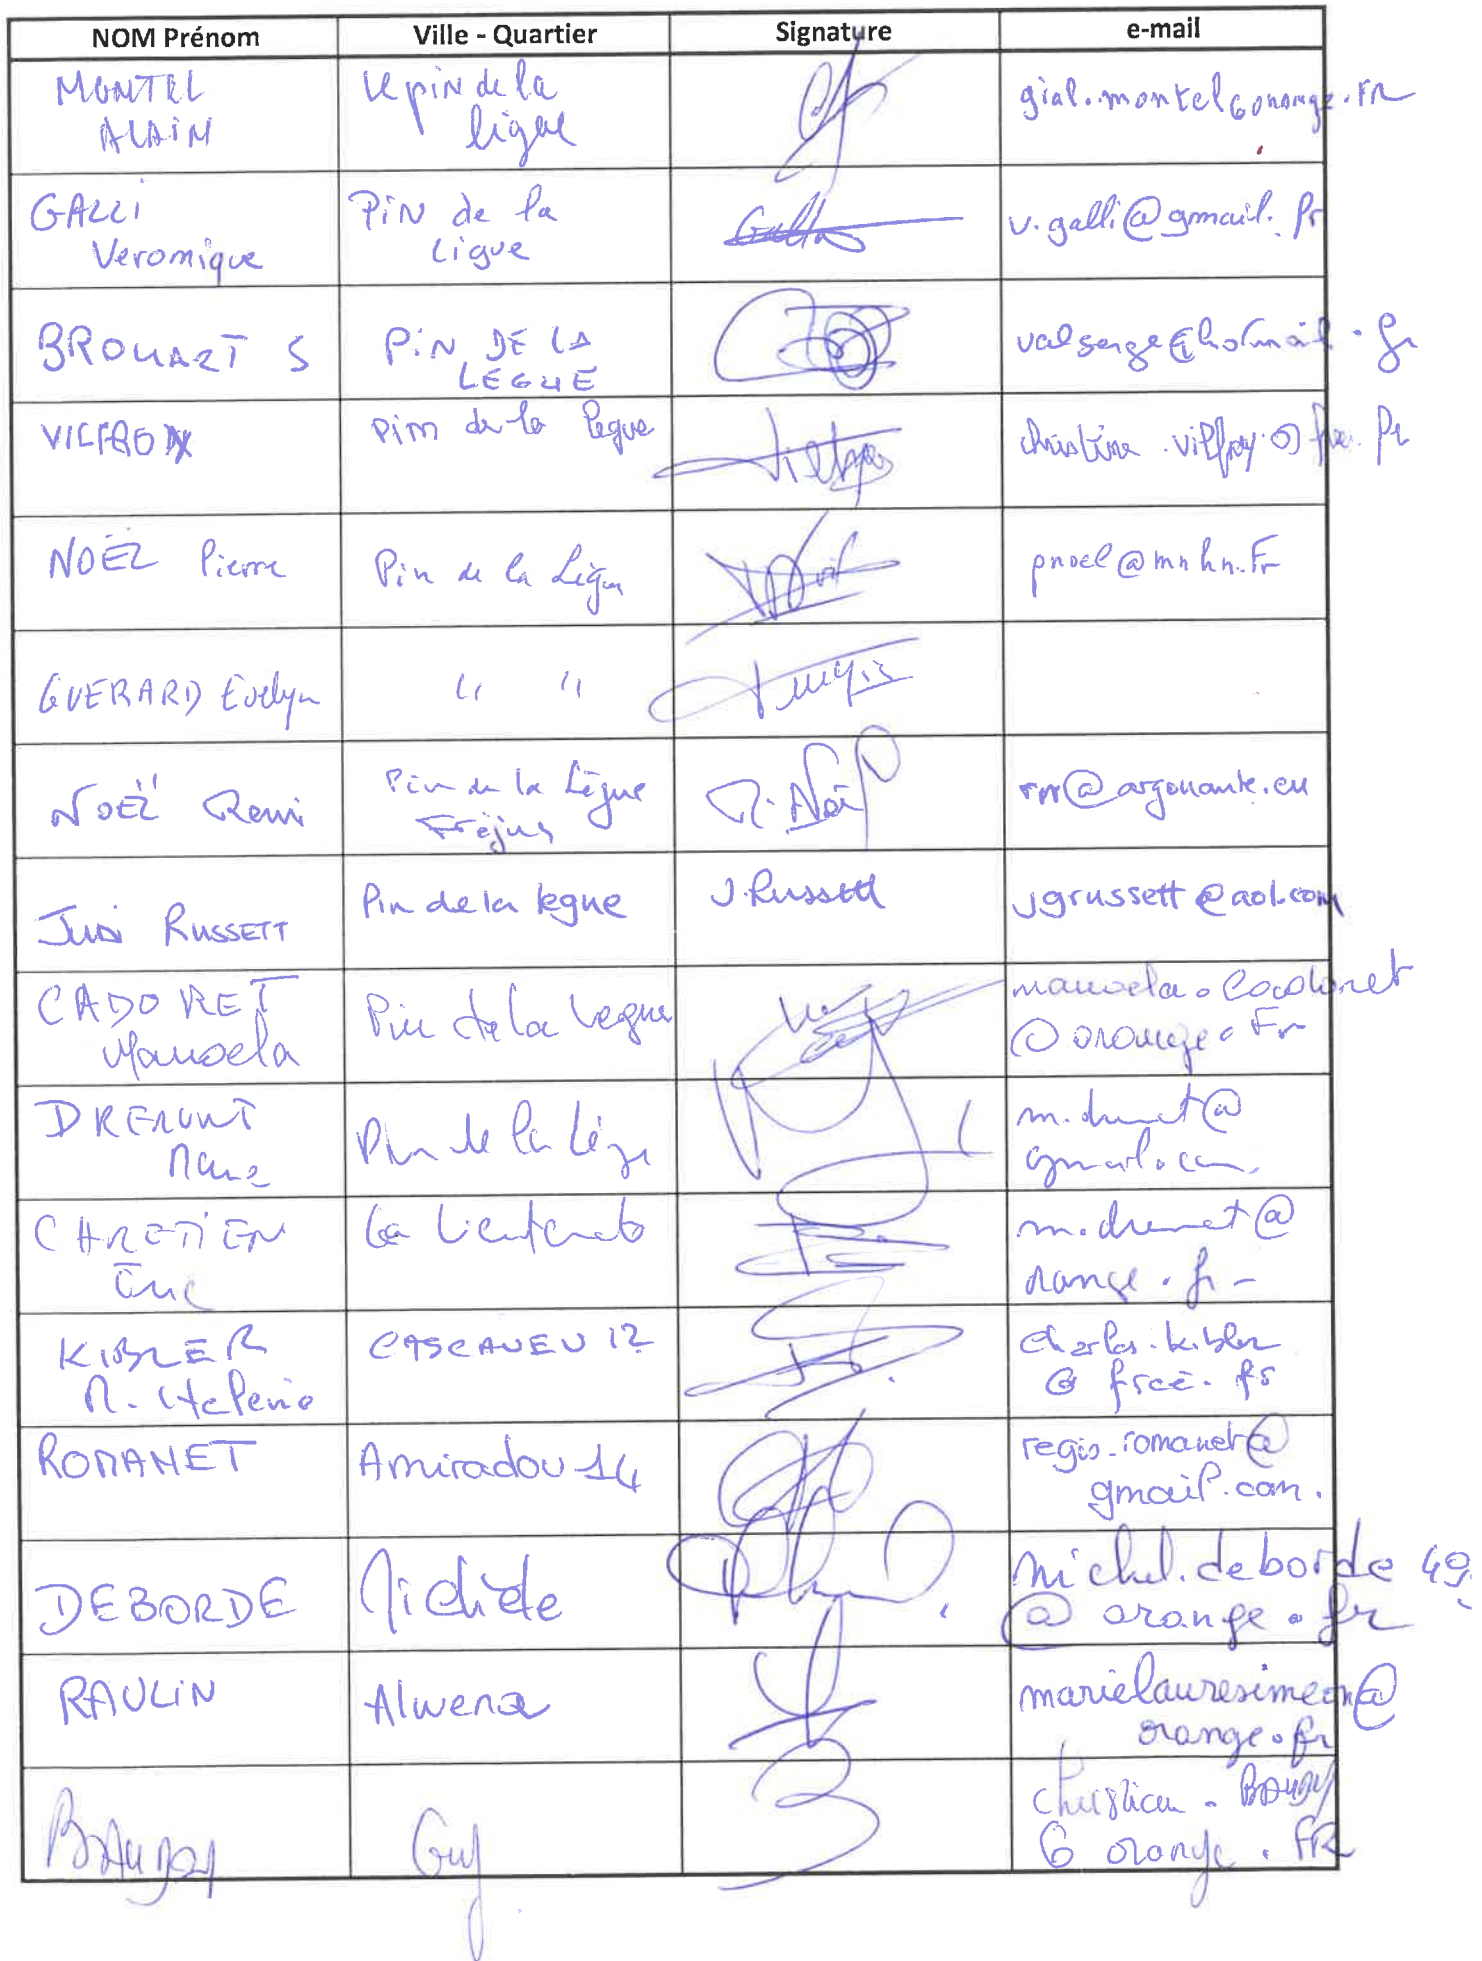 NOM Prénom Ville - Quartier Signature e-mail
MONTEL
ALAIN
Le pin de la
ligue
gial.montel@orange.FR
GALLI
Veronique
PiN de la
Ligue
Galli
v.galli@gmail.fr
BROUAZT S
PiN DE LA
LEGUE
valserge@hotmail.fr
VILFROY
Pin de la legue
christine.vilfroy@free.fr
NOËL Pierre
Pin de la Lègue
pnoel@mnhn.Fr
GUERARD Evelyn
" "
NOËL Remi
Pin de la Lègue
Fréjus
R. Noël
rm@argonaute.eu
Judi RUSSETT
Pin de la legue
J. Russett
jgrussett@aol.com
CADORET
Manoela
Pin de la Legue
manoela.cadoret
@orange.Fr
Pin de la Lège
m.drumet@
gmail.com
CHRETIEN
Eric
m.drumet@
orange.fr -
KIBLER
M. Helene
CASCAVEU 12
charles.kibler
@ free.fr
ROMANET
Amiradou 14
regis.romanet@
gmail.com.
DEBORDE
Michèle
michel.deborde 49
@ orange.fr
RAULIN
Alwena
marielauresimeon@
orange.fr
BAUDRY
Guy
christian.BAUDRY
@ orange.FR